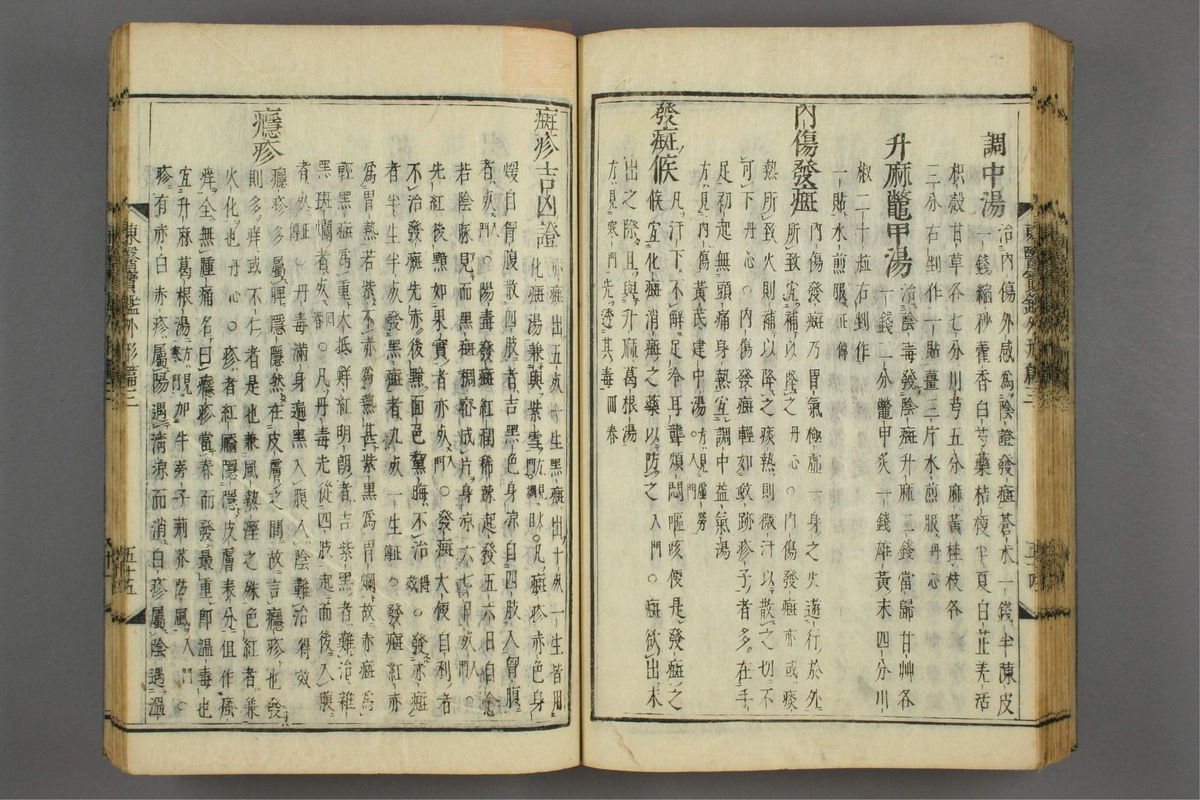 調中湯 治內傷外感爲陰證發癍蒼朮一錢半陳皮
一錢縮砂藿香白芍藥桔梗半夏白芷羌活
枳殼甘草各七分川芎五分麻黃桂枝各
三分右剉作一貼薑三片水煎服丹心
升麻鼈甲湯 治陰毒發陰癍升麻二錢當歸甘艸各
一錢二分鼈甲炙一錢雄黃末四分川
椒二十粒右剉作
一貼水煎服
內傷發癍 內傷發癍乃胃氣極虛一身之火遊行於外
所致宜補以降之丹心○內傷發癍亦或痰
熱所致火則補以降之痰熱則微汗以散之切不
可下丹心○內傷發癍輕如蚊跡疹子者多在手
足初起無頭痛身熱宜調中益氣湯
方見內傷黃芪建中湯方見虛勞入門
發癍候 凡汗下不解足冷耳聾煩悶嘔咳便是發癍之
候宜化癍消癍之藥以防之入門○癍欲出未
出之際且與升麻葛根湯
方見寒門先透其毒
癍疹吉凶證 赤癍出五死一生黑癍出十死一生皆用
化癍湯兼與紫雪○凡癍疹赤色身
煖自胷腹散四肢者吉黑色身凉自四肢入胷腹
者死入門○陽毒發癍紅潤稀踈起發五六日自愈
若陰脉見而黑癍稠密成片身凉六七日死入門○
先紅後黯如果實者亦死入門○發癍大便自利者
不治發癍先赤後黯面色黧晦不治得效○發赤癍
者半生半死發黑癍者九死一生○發癍紅赤
爲胃熱若紫不赤爲熱甚紫黑爲胃爛故赤癍爲
輕黑癍爲重大抵鮮紅明朗者吉紫黑者難治雜
黑斑爛者死○凡丹毒先從四肢起而後入腹
者死○丹毒滿身遍黑入腹入陰難治得效
癮疹 癮疹多屬脾隱隱然在皮膚之間故言癮疹也發
則多痒或不仁者是也兼風熱溼之殊色紅者兼
火化也丹心○疹者紅靨隱隱皮膚表分但作瘙
痒全無腫痛名曰癮疹當春而發最重卽溫毒也
宜升麻葛根湯方見寒門加牛蒡子荊芥防風入門○
疹有赤白赤疹屬陽遇淸凉而消白疹屬陰遇溫